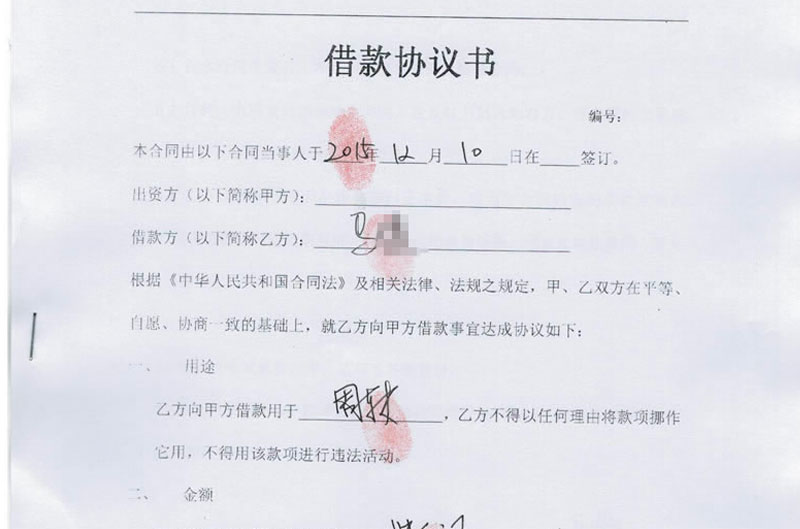 借款协议书
编号：
本合同由以下合同当事人于2015年12月10日在____签订。
出资方（以下简称甲方）：
借款方（以下简称乙方）：马
根据《中华人民共和国合同法》及相关法律、法规之规定，甲、乙双方在平等、
自愿、协商一致的基础上，就乙方向甲方借款事宜达成协议如下：
一、 用途
乙方向甲方借款用于周转，乙方不得以任何理由将款项挪作
它用，不得用该款项进行违法活动。
二、 金额